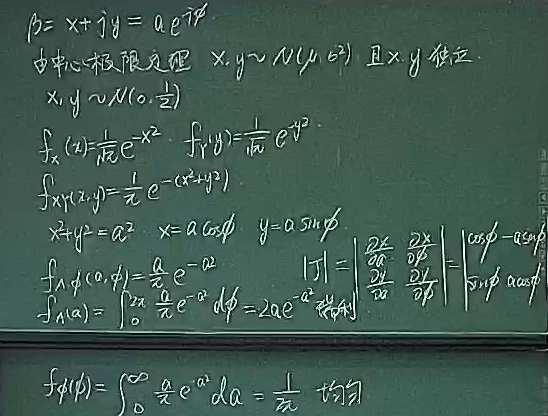 β = x + jy = a e^{jφ}
由中心极限定理 x, y ~ N(μ, σ²) 且 x, y 独立.
x, y ~ N(0, 1/2)
f_X(x) = 1/√π e^{-x²} f_Y(y) = 1/√π e^{-y²}
f_{XY}(x,y) = 1/π e^{-(x²+y²)}
x² + y² = a² x = a cosφ y = a sinφ
f_{Λφ}(a, φ) = a/π e^{-a²} |J| = | ∂x/∂a ∂x/∂φ ; ∂y/∂a ∂y/∂φ | = | cosφ -a sinφ ; sinφ a cosφ
f_Λ(a) = ∫_0^{2π} a/π e^{-a²} dφ = 2a e^{-a²} 瑞利
f_φ(φ) = ∫_0^∞ a/π e^{-a²} da = 1/2π 均匀